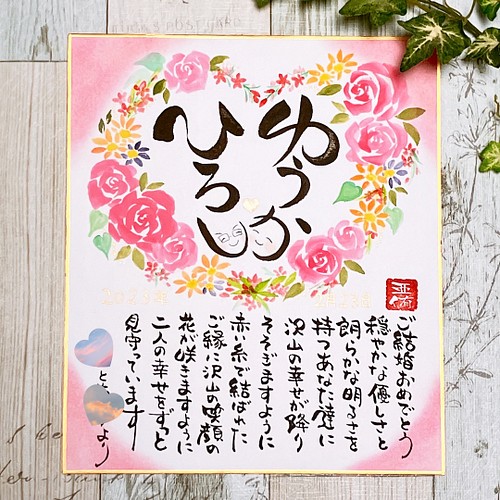 ゆうか
ひろし
ご結婚おめでとう
穏やかな優しさと
朗らかな明るさを
持つあなた達に
沢山の幸せが降り
そそぎますように
赤い糸で結ばれた
ご縁に沢山の笑顔の
花が咲きますように
二人の幸せをずっと
見守っています
より